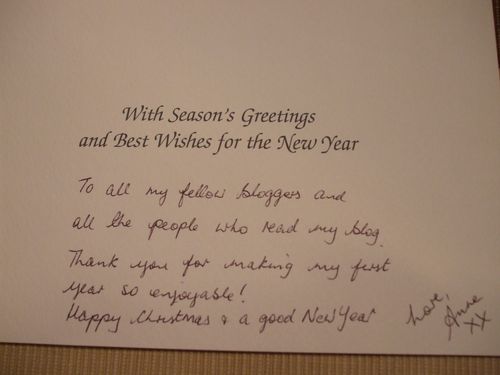 With Season's Greetings
and Best Wishes for the New Year
To all my fellow bloggers and
all the people who read my blog.
Thank you for making my first
year so enjoyable!
Happy Christmas & a good New Year
Love,
Anne
XX